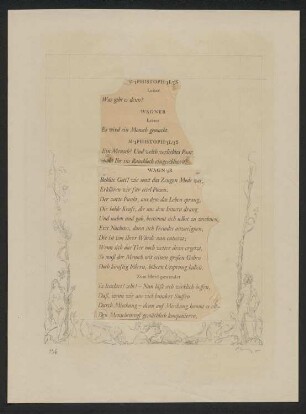 MEPHISTOPHELES
leiser
Was gibt es denn?
WAGNER
leiser
Es wird ein Mensch gemacht.
MEPHISTOPHELES
Ein Mensch? Und welch verliebtes Paar
habt Ihr ins Rauchloch eingeschlossen?
WAGNER
Behüte Gott! wie sonst das Zeugen Mode war,
Erklären wir für eitel Possen.
Der zarte Punkt, aus dem das Leben sprang,
Die holde Kraft, die aus dem Innern drang
Und nahm und gab, bestimmt sich selbst zu zeichnen,
Erst Nächstes, dann sich Fremdes anzueignen,
Die ist von ihrer Würde nun entsetzt;
Wenn sich das Tier noch weiter dran ergetzt,
So muß der Mensch mit seinen großen Gaben
Doch künftig höhern, höhern Ursprung haben.
Zum Herd gewendet
Es leuchtet! seht! – Nun läßt sich wirklich hoffen,
Daß, wenn wir aus viel hundert Stoffen
Durch Mischung – denn auf Mischung kommt es an –
Den Menschenstoff gemächlich komponieren,